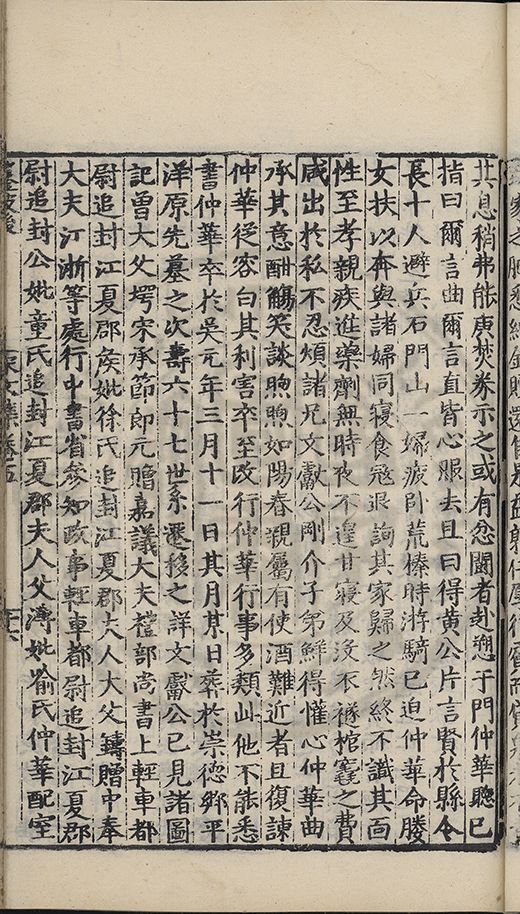 其息稍弗能庚焚券示之或有忿鬬者赴愬于門仲華聽已
指曰爾言曲爾言直皆心服去且曰得黄公片言賢於縣令
長十人避兵石門山一婦疲卧荒榛時游騎已迫仲華命媵
女扶以奔與諸婦同寝食冦退詢其家歸之然終不識其面
性至孝親疾進藥劑無時夜不遑甘寝及没不襚棺窆之費
咸出於私不忍煩諸兄文獻公剛介子弟鮮得懽心仲華曲
承其意酣觴笑談煦煦如陽春親屬有使酒難近者且復諫
仲華從容白其利害卒至改行仲華行事多類此他不能悉
書仲華卒於吳元年三月十一日其月某日葬於崇德鄉平
洋原先墓之次壽六十七世系遷移之詳文獻公已見諸圖
記曽大父堮宋承節郎元贈嘉議大夫禮部尚書上輕車都
尉追封江夏郡侯妣徐氏追封江夏郡夫人大父鑄贈中奉
大夫江浙等處行中書省參知政事輕車都尉追封江夏郡
尉追封公妣童氏追封江夏郡夫人父溥妣俞氏仲華配室